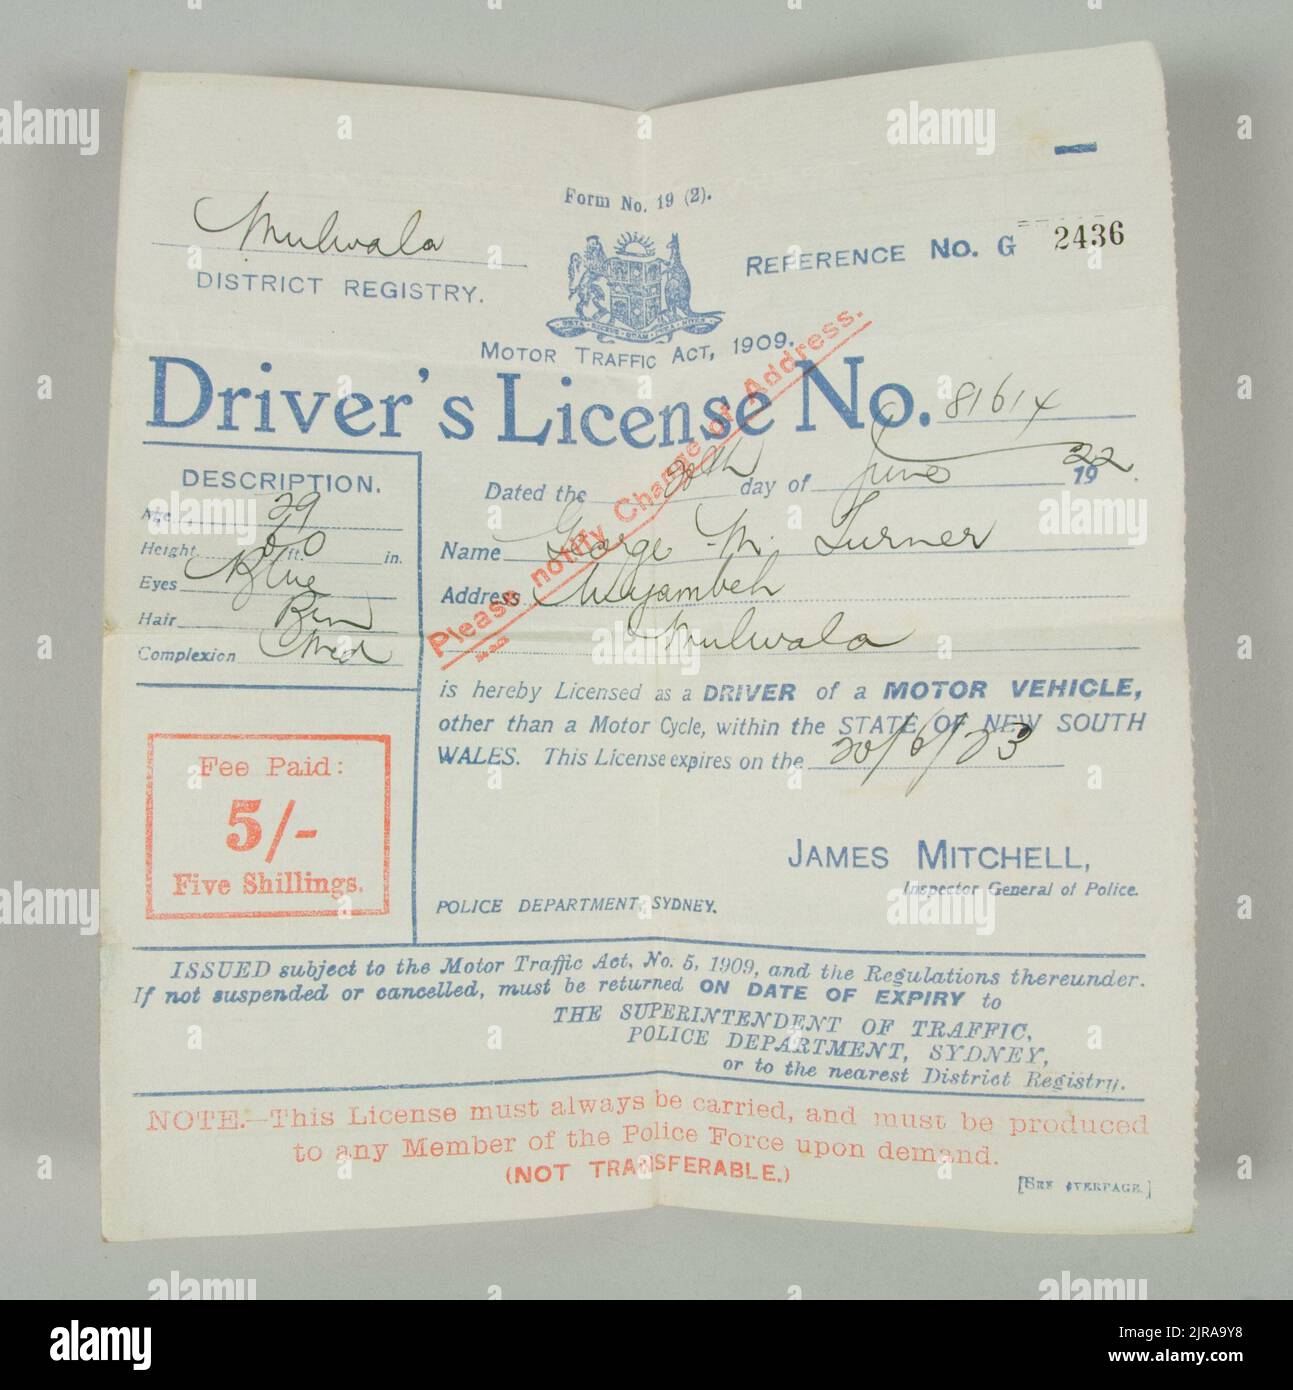 Form No. 19 (2).
Mulwala
DISTRICT REGISTRY.
REFERENCE No. G 2436
MOTOR TRAFFIC ACT, 1909.
Driver's License No. 81614
Please notify Change of Address.
DESCRIPTION.
Age 29
Height 6 ft. 0 in.
Eyes Blue
Hair Brn
Complexion Med
Dated the 20th day of June 1922.
Name George M. Turner
Address Wyambeh
Mulwala
is hereby Licensed as a DRIVER of a MOTOR VEHICLE,
other than a Motor Cycle, within the STATE OF NEW SOUTH
WALES. This License expires on the 20/6/23
Fee Paid:
5/-
Five Shillings.
JAMES MITCHELL,
Inspector General of Police.
POLICE DEPARTMENT, SYDNEY.
ISSUED subject to the Motor Traffic Act, No. 5, 1909, and the Regulations thereunder.
If not suspended or cancelled, must be returned ON DATE OF EXPIRY to
THE SUPERINTENDENT OF TRAFFIC,
POLICE DEPARTMENT, SYDNEY,
or to the nearest District Registry.
NOTE.—This License must always be carried, and must be produced
to any Member of the Police Force upon demand.
(NOT TRANSFERABLE.)
[SEE OVERPAGE.]
alamy
Image ID: 2JRA9Y8
www.alamy.com